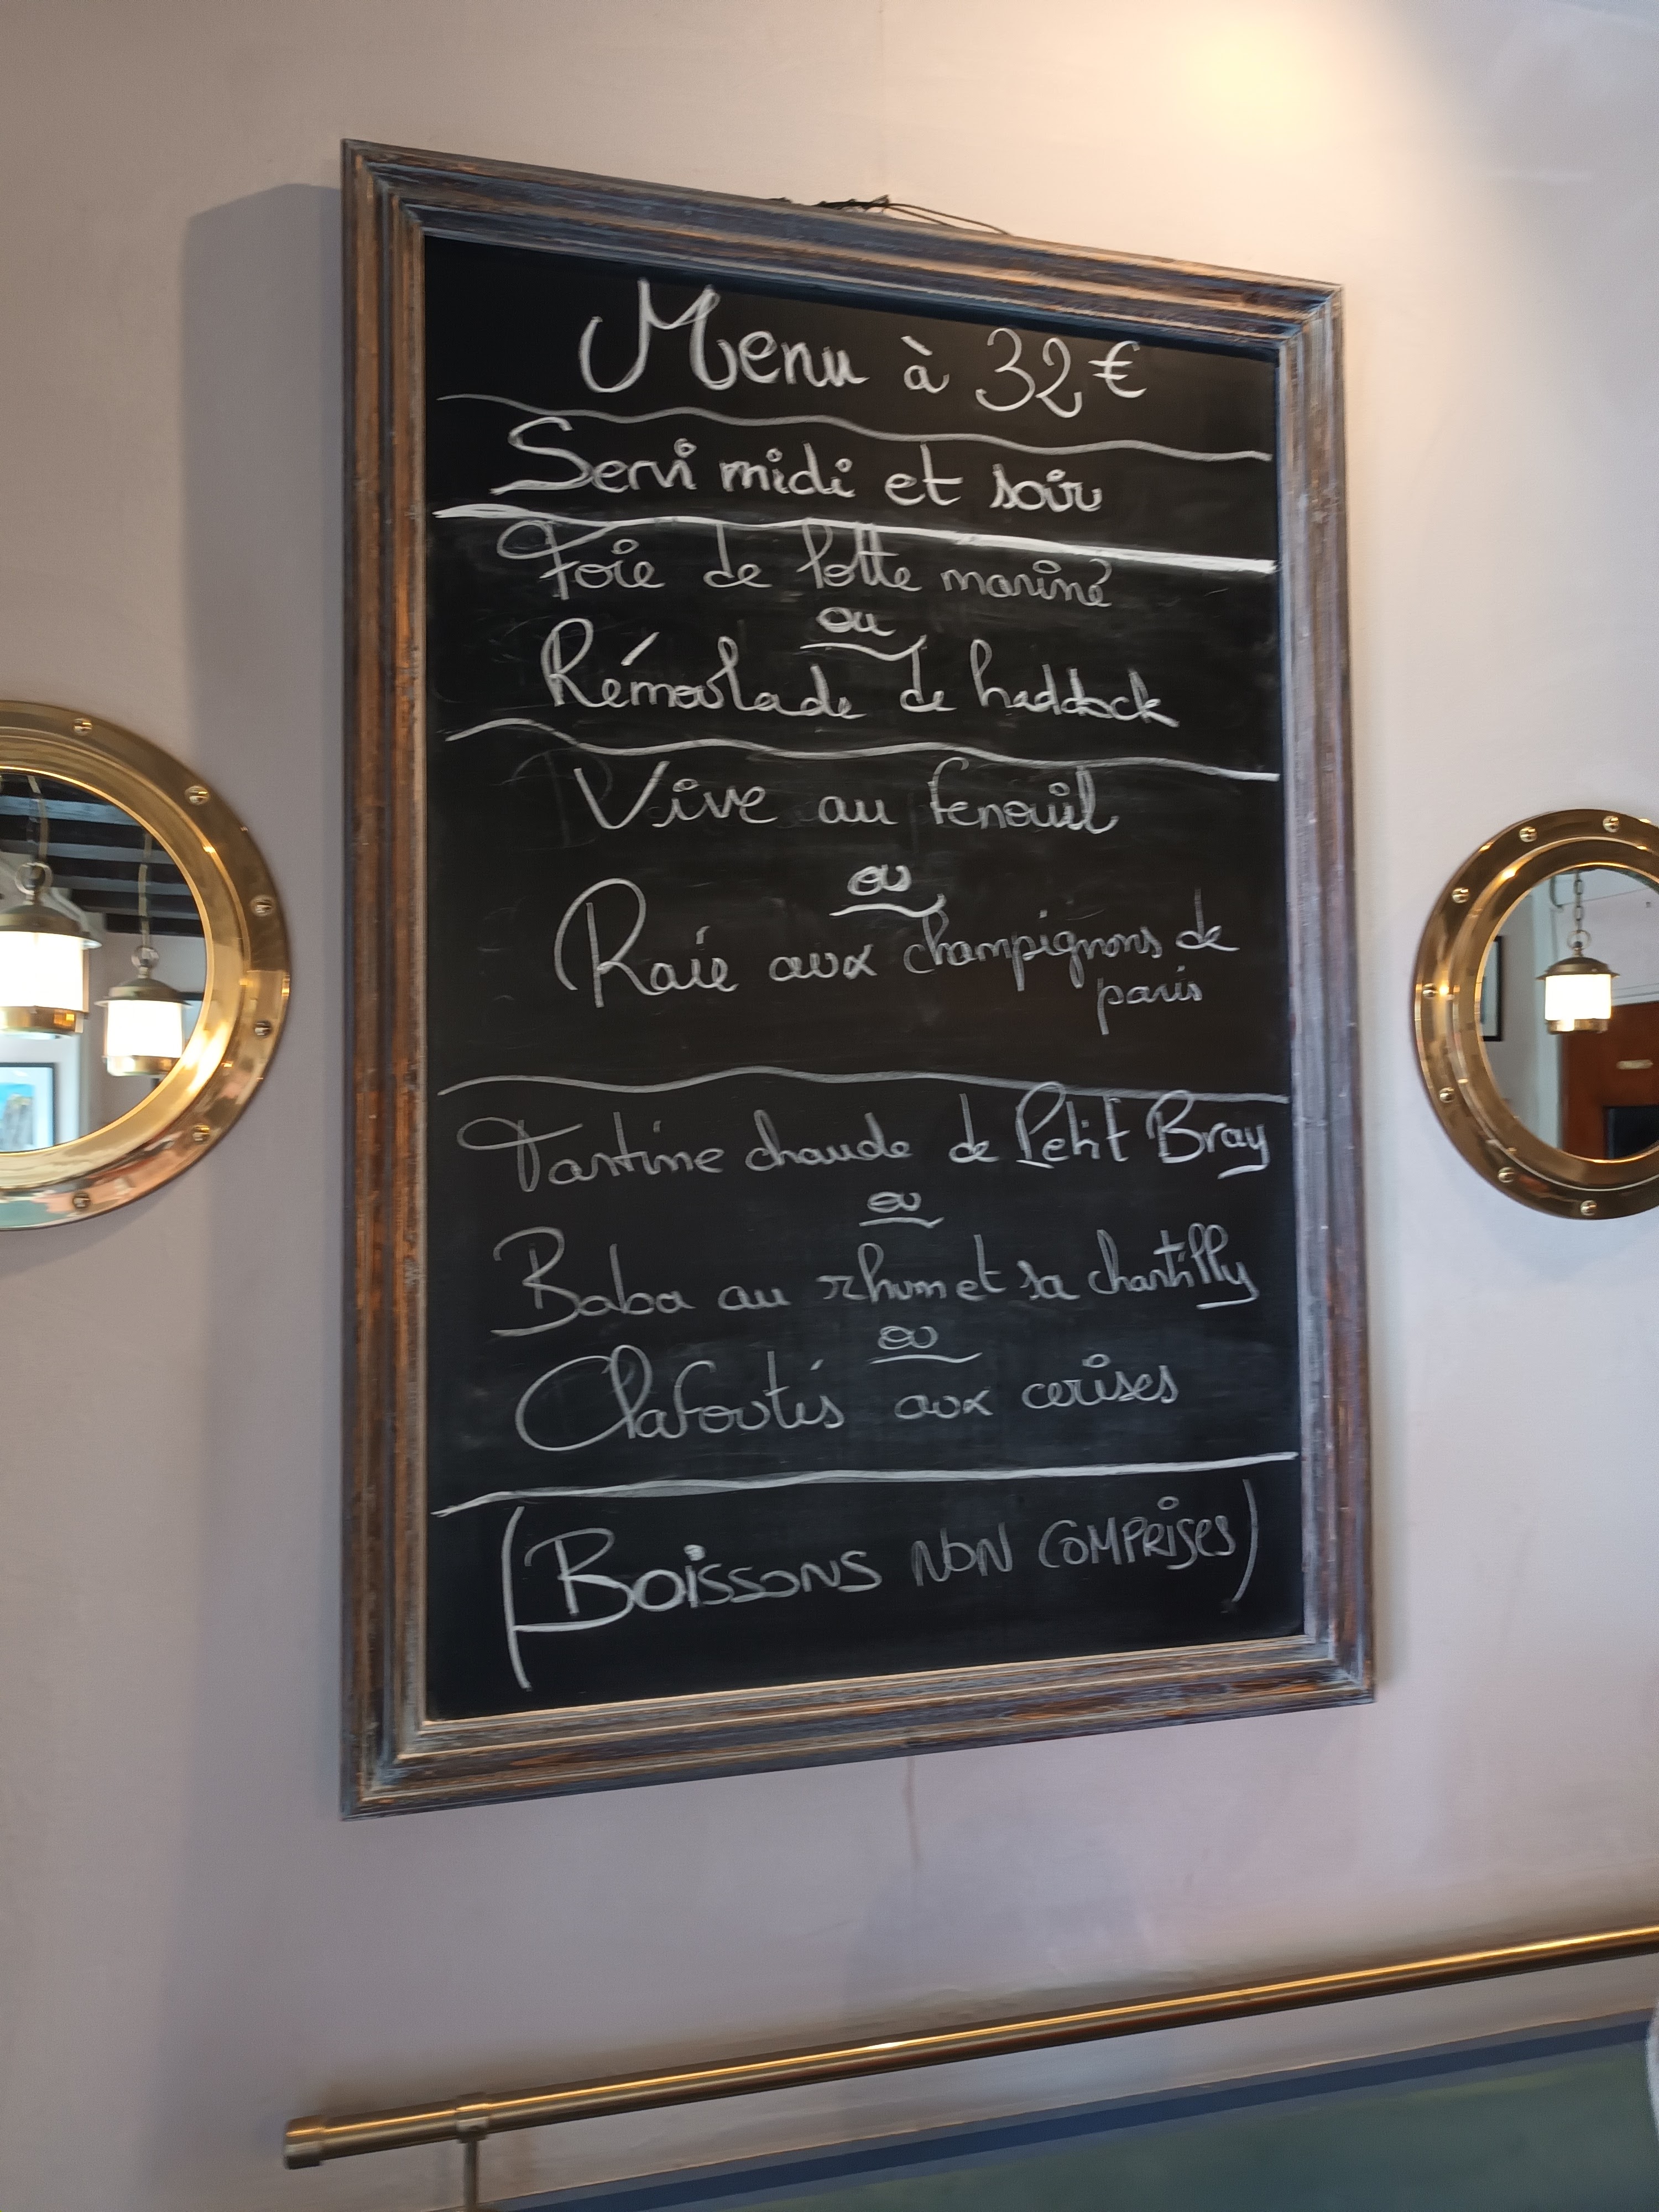 Menu à 32€
Servi midi et soir
Foie de lotte mariné
ou
Rémoulade de haddock
Vive au fenouil
ou
Raie aux champignons de
paris
Tartine chaude de Petit Bray
ou
Baba au rhum et sa chantilly
ou
Clafoutis aux cerises
(BOISSONS NON COMPRISES)